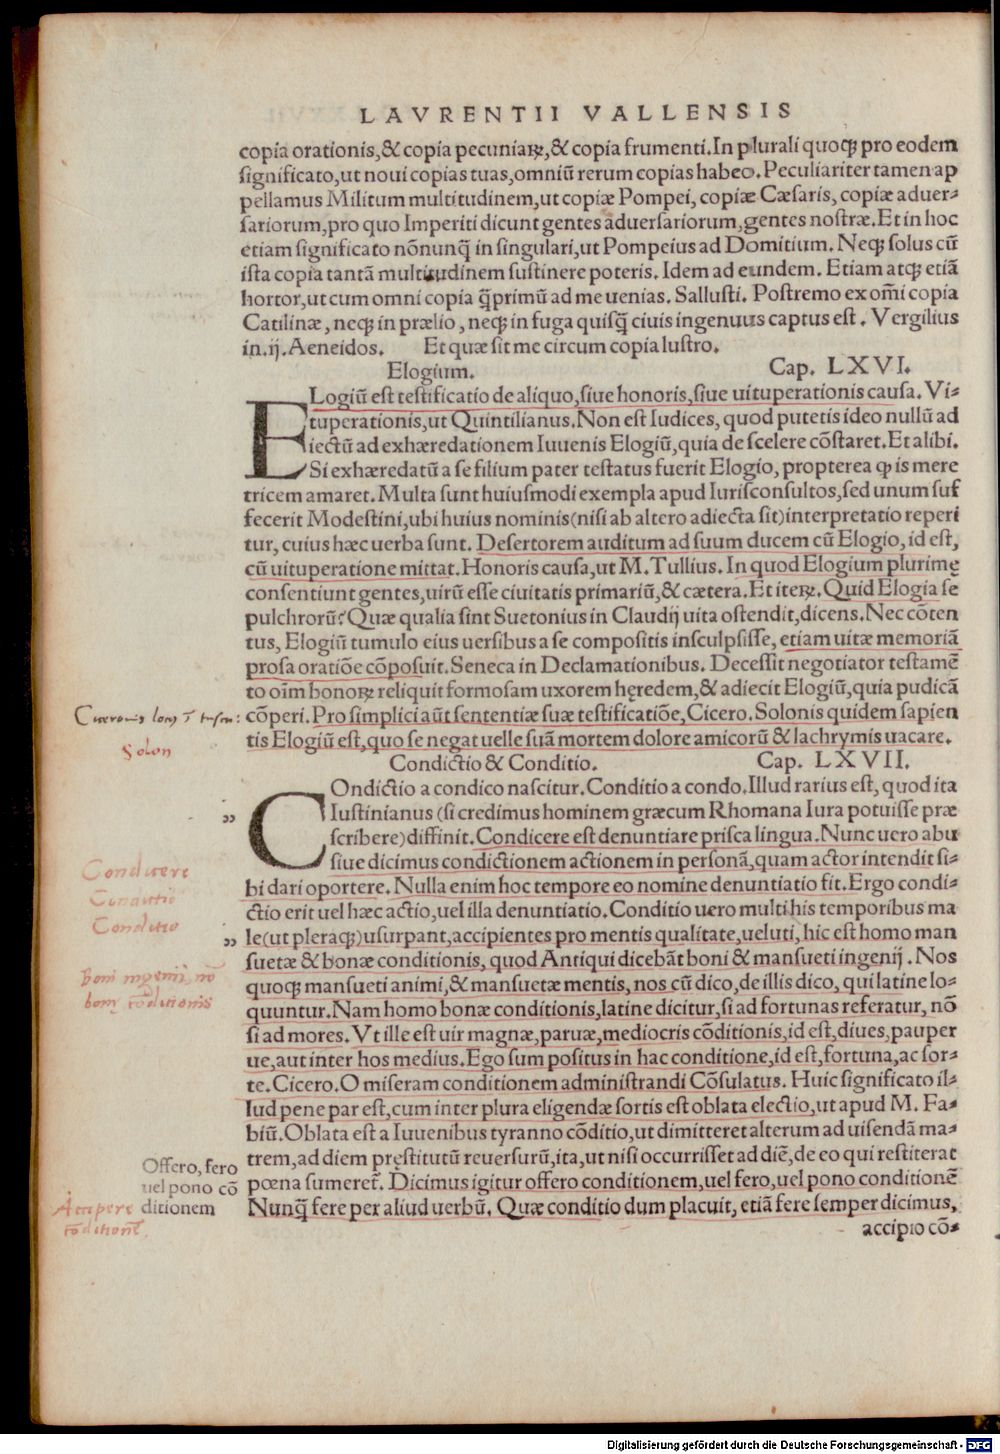 LAVRENTII VALLENSIS
copia orationis,&copia pecuniaꝝ,&copia frumenti.In plurali quoqꝫ pro eodem
significato,ut noui copias tuas,omniũ rerum copias habeo.Peculiariter tamen ap
pellamus Militum multitudinem,ut copiæ Pompei, copiæ Cæsaris, copiæ aduer⸗
sariorum,pro quo Imperiti dicunt gentes aduersariorum,gentes nostræ.Et in hoc
etiam significato nõnunq̃ in singulari,ut Pompeius ad Domitium. Neqꝫ solus cũ
ista copia tantã multitudinem sustinere poteris. Idem ad eundem. Etiam atqꝫ etiã
hortor,ut cum omni copia q̃primũ ad me uenias. Sallusti. Postremo ex om̃i copia
Catilinæ, neqꝫ in prælio, neqꝫ in fuga quisq̃ ciuis ingenuus captus est. Vergilius
in.ij.Aeneidos. Et quæ sit me circum copia lustro.
Elogium. Cap. LXVI.
ELogiũ est testificatio de aliquo,siue honoris,siue uituperationis causa. Vi⸗
tuperationis,ut Quintilianus. Non est Iudices, quod putetis ideo nullũ ad
iectũ ad exhæredationem Iuuenis Elogiũ,quia de scelere cõstaret.Et alibi.
Si exhæredatũ a se filium pater testatus fuerit Elogio, propterea ꝙ is mere
tricem amaret. Multa sunt huiusmodi exempla apud Iurisconsultos,sed unum suf
fecerit Modestini,ubi huius nominis(nisi ab altero adiecta sit)interpretatio reperi
tur, cuius hæc uerba sunt. Desertorem auditum ad suum ducem cũ Elogio, id est,
cũ uituperatione mittat. Honoris causa,ut M.Tullius. In quod Elogium plurimę
consentiunt gentes,uirũ esse ciuitatis primariũ,& cætera. Et iteꝝ. Quid Elogia se
pulchrorũ? Quæ qualia sint Suetonius in Claudij uita ostendit,dicens. Nec cõten
tus, Elogiũ tumulo eius uersibus a se compositis insculpsisse, etiam uitæ memoriã
prosa oratiõe cõposuit. Seneca in Declamationibus. Decessit negotiator testamẽ
to oĩm bonoꝝ reliquit formosam uxorem hęredem,& adiecit Elogiũ,quia pudicã
cõperi. Pro simplici aũt sententiæ suæ testificatiõe, Cicero. Solonis quidem sapien
tis Elogiũ est,quo se negat uelle suã mortem dolore amicorũ & lachrymis uacare.
Solon
Condictio & Conditio. Cap. LXVII.
COndictio a condico nascitur. Conditio a condo. Illud rarius est, quod ita
Iustinianus (si credimus hominem græcum Rhomana Iura potuisse præ
scribere)diffinit. Condicere est denuntiare prisca lingua. Nunc uero abu
siue dicimus condictionem actionem in personã,quam actor intendit si⸗
bi dari oportere. Nulla enim hoc tempore eo nomine denuntiatio fit. Ergo condi⸗
ctio erit uel hæc actio,uel illa denuntiatio. Conditio uero multi his temporibus ma
le(ut pleraqꝫ)usurpant,accipientes pro mentis qualitate,ueluti, hic est homo man
suetæ & bonæ conditionis, quod Antiqui dicebãt boni & mansueti ingenij. Nos
quoqꝫ mansueti animi,& mansuetæ mentis, nos cũ dico, de illis dico, qui latine lo⸗
quuntur. Nam homo bonæ conditionis,latine dicitur,si ad fortunas referatur, nõ
si ad mores. Vt ille est uir magnæ,paruæ,mediocris cõditionis,id est,diues,pauper
ue,aut inter hos medius. Ego sum positus in hac conditione,id est,fortuna,ac sor⸗
te.Cicero. O miseram conditionem administrandi Cõsulatus. Huic significato il⸗
lud pene par est,cum inter plura eligendæ sortis est oblata electio,ut apud M. Fa⸗
biũ. Oblata est a Iuuenibus tyranno cõditio,ut dimitteret alterum ad uisendã ma⸗
trem,ad diem pręstitutũ reuersurũ,ita,ut nisi occurrisset ad diẽ, de eo qui restiterat
pœna sumeret᷑. Dicimus igitur offero conditionem,uel fero,uel pono conditionẽ
Nunq̃ fere per aliud uerbũ. Quæ conditio dum placuit, etiã fere semper dicimus,
accipio cõ⸗
Condicere
Condictio
Conditio
Boni ingenij, nõ
bonę cõditionis
Offero, fero
uel pono cõ
ditionem
Accipere
cõditionẽ
Digitalisierung gefördert durch die Deutsche Forschungsgemeinschaft - DFG